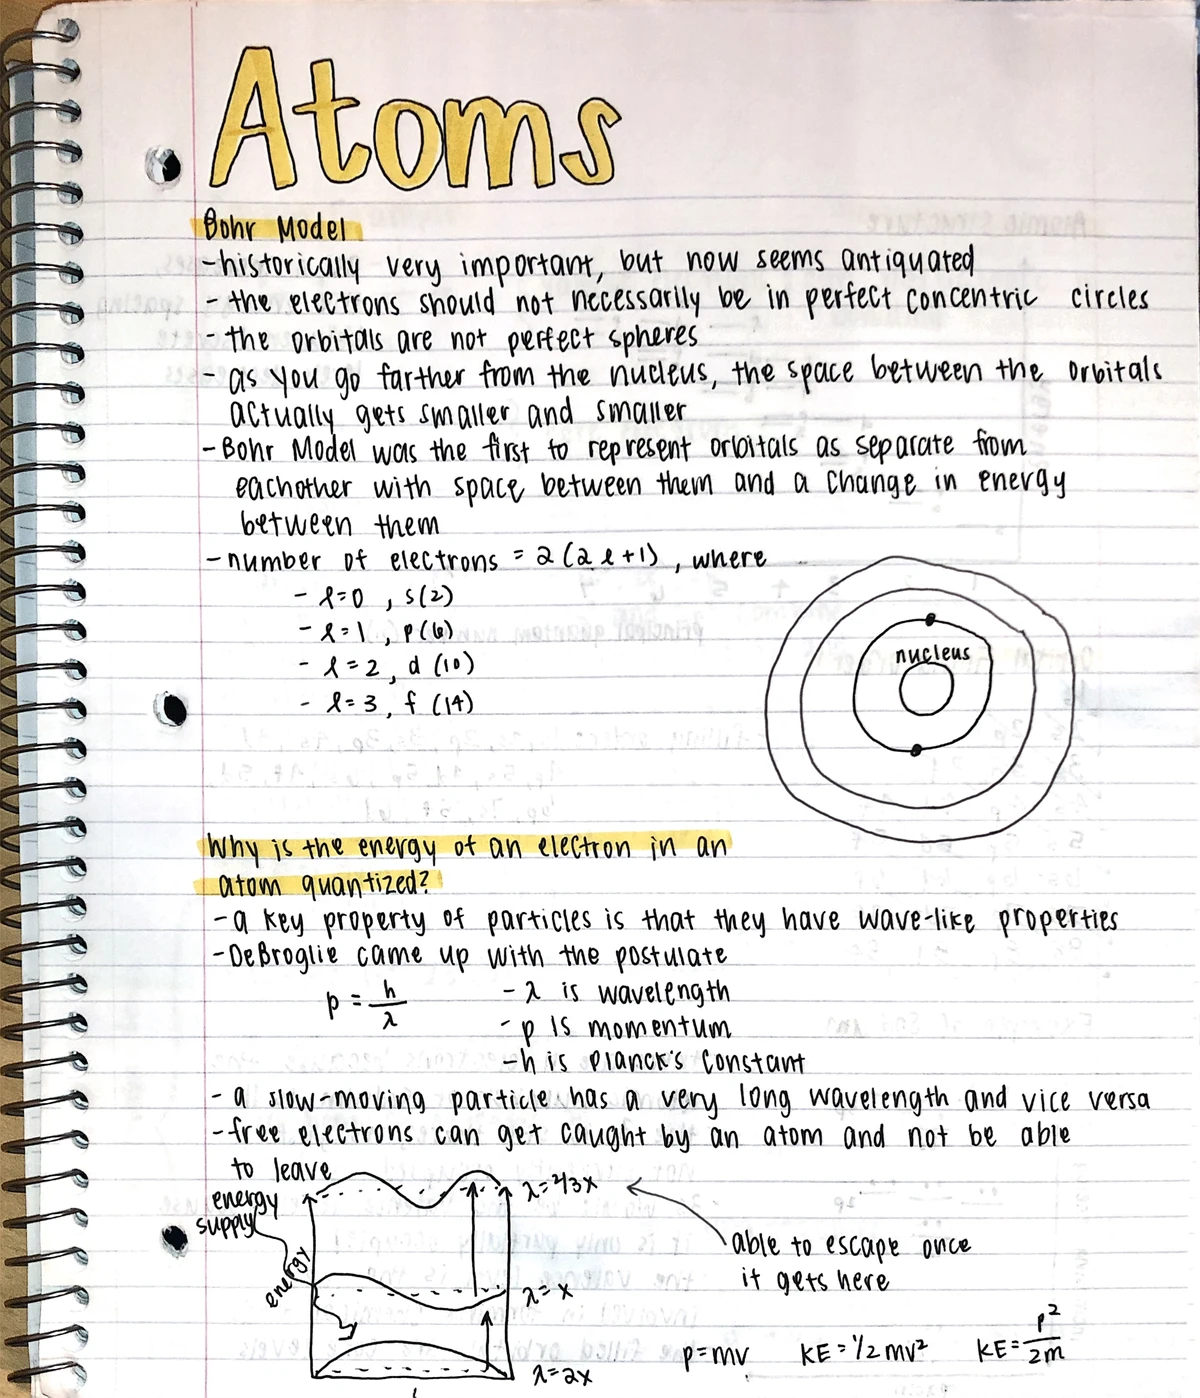 Atoms
Bohr Model
-historically very important, but now seems antiquated
- the electrons should not necessarily be in perfect concentric circles
- the orbitals are not perfect spheres
- as you go farther from the nucleus, the space between the orbitals
actually gets smaller and smaller
- Bohr Model was the first to represent orbitals as separate from
eachother with space between them and a change in energy
between them
- number of electrons = 2(2l+1), where
- l=0, s(2)
- l=1, p(6)
- l=2, d (10)
- l=3, f (14)
nucleus
Why is the energy of an electron in an
atom quantized?
-a key property of particles is that they have wave-like properties
-DeBroglie came up with the postulate
p = h/λ
- λ is wavelength
- p is momentum
-h is Planck's constant
- a slow-moving particle has a very long wavelength and vice versa
-free electrons can get caught by an atom and not be able
to leave
energy
supply
energy
λ=2/3x
able to escape once
it gets here
λ=x
λ=2x
p=mv
KE=1/2mv²
KE=p²/2m